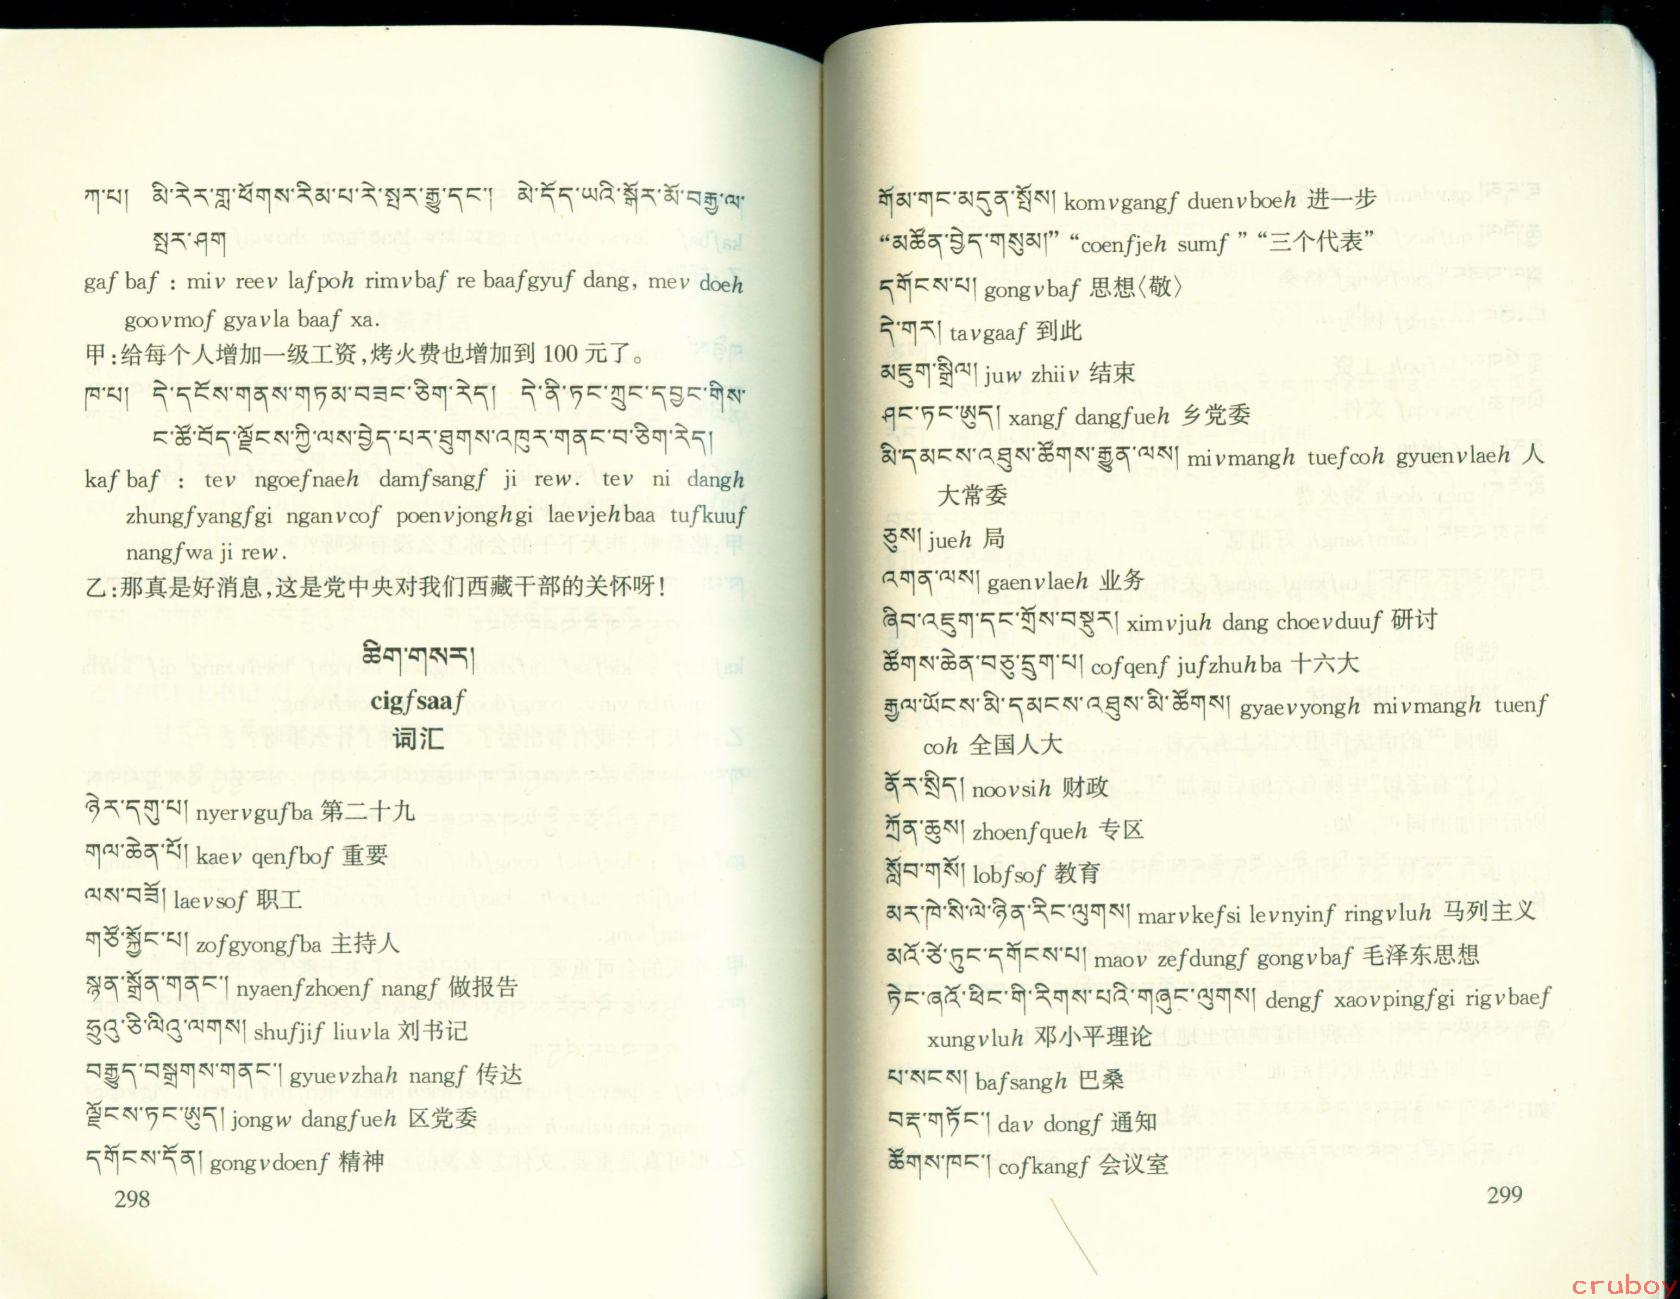 ཀ་པ། མི་རེར་གླ་ཕོགས་རིམ་པ་རེ་སྤར་རྒྱུ་དང་། མེ་དོད་ཡའི་སྒོར་མོ་བརྒྱ་ལ་
སྤར་ཤག
gaf baf : miv reev lafpoh rimvbaf re baafgyuf dang, mev doeh
goovmof gyavla baaf xa.
甲:给每个人增加一级工资,烤火费也增加到 100 元了。
ཁ་པ། དེ་དངོས་གནས་གཏམ་བཟང་ཅིག་རེད། དེ་ནི་ཏང་ཀྲུང་དབྱང་གིས་
ང་ཚོ་བོད་ལྗོངས་ཀྱི་ལས་བྱེད་པར་ཐུགས་འཁུར་གནང་བ་ཅིག་རེད།
kaf baf : tev ngoefnaeh damfsangf ji rew. tev ni dangh
zhungfyangfgi nganvcof poenvjonghgi laevjehbaa tufkuuf
nangfwa ji rew.
乙:那真是好消息,这是党中央对我们西藏干部的关怀呀!
ཚིག་གསར།
cigfsaaf
词汇
ཉེར་དགུ་པ། nyervgufba 第二十九
གལ་ཆེན་པོ། kaev qenfbof 重要
ལས་བཟོ། laevsof 职工
གཙོ་སྐྱོང་པ། zofgyongfba 主持人
སྙན་སྒྲོན་གནང་། nyaenfzhoenf nangf 做报告
ཧྲུའུ་ཅི་ལིའུ་ལགས། shufjif liuvla 刘书记
བརྒྱུད་བསྒྲགས་གནང་། gyuevzhah nangf 传达
ལྗོངས་ཏང་ཨུད། jongw dangfueh 区党委
དགོངས་དོན། gongvdoenf 精神
298
གོམ་གང་མདུན་སྤོས། komvgangf duenvboeh 进一步
“མཚོན་བྱེད་གསུམ།” “coenfjeh sumf ” “三个代表”
དགོངས་པ། gongvbaf 思想〈敬〉
དེ་གར། tavgaaf 到此
མཇུག་སྒྲིལ། juw zhiiv 结束
ཤང་ཏང་ཨུད། xangf dangfueh 乡党委
མི་དམངས་འཐུས་ཚོགས་རྒྱུན་ལས། mivmangh tuefcoh gyuenvlaeh 人
大常委
ཅུས། jueh 局
འགན་ལས། gaenvlaeh 业务
ཞིབ་འཇུག་དང་གྲོས་བསྡུར། ximvjuh dang choevduuf 研讨
ཚོགས་ཆེན་བཅུ་དྲུག་པ། cofqenf jufzhuhba 十六大
རྒྱལ་ཡོངས་མི་དམངས་འཐུས་མི་ཚོགས། gyaevyongh mivmangh tuenf
coh 全国人大
ནོར་སྲིད། noovsih 财政
ཀྲོན་ཆུས། zhoenfqueh 专区
སློབ་གསོ། lobfsof 教育
མར་ཁེ་སི་ལེ་ཉིན་རིང་ལུགས། marvkefsi levnyinf ringvluh 马列主义
མའོ་ཙེ་ཏུང་དགོངས་པ། maov zefdungf gongvbaf 毛泽东思想
ཏེང་ཞའོ་ཕིང་གི་རིགས་པའི་གཞུང་ལུགས། dengf xaovpingfgi rigvbaef
xungvluh 邓小平理论
པ་སངས། bafsangh 巴桑
བརྡ་གཏོང་། dav dongf 通知
ཚོགས་ཁང་། cofkangf 会议室
299
cruboy